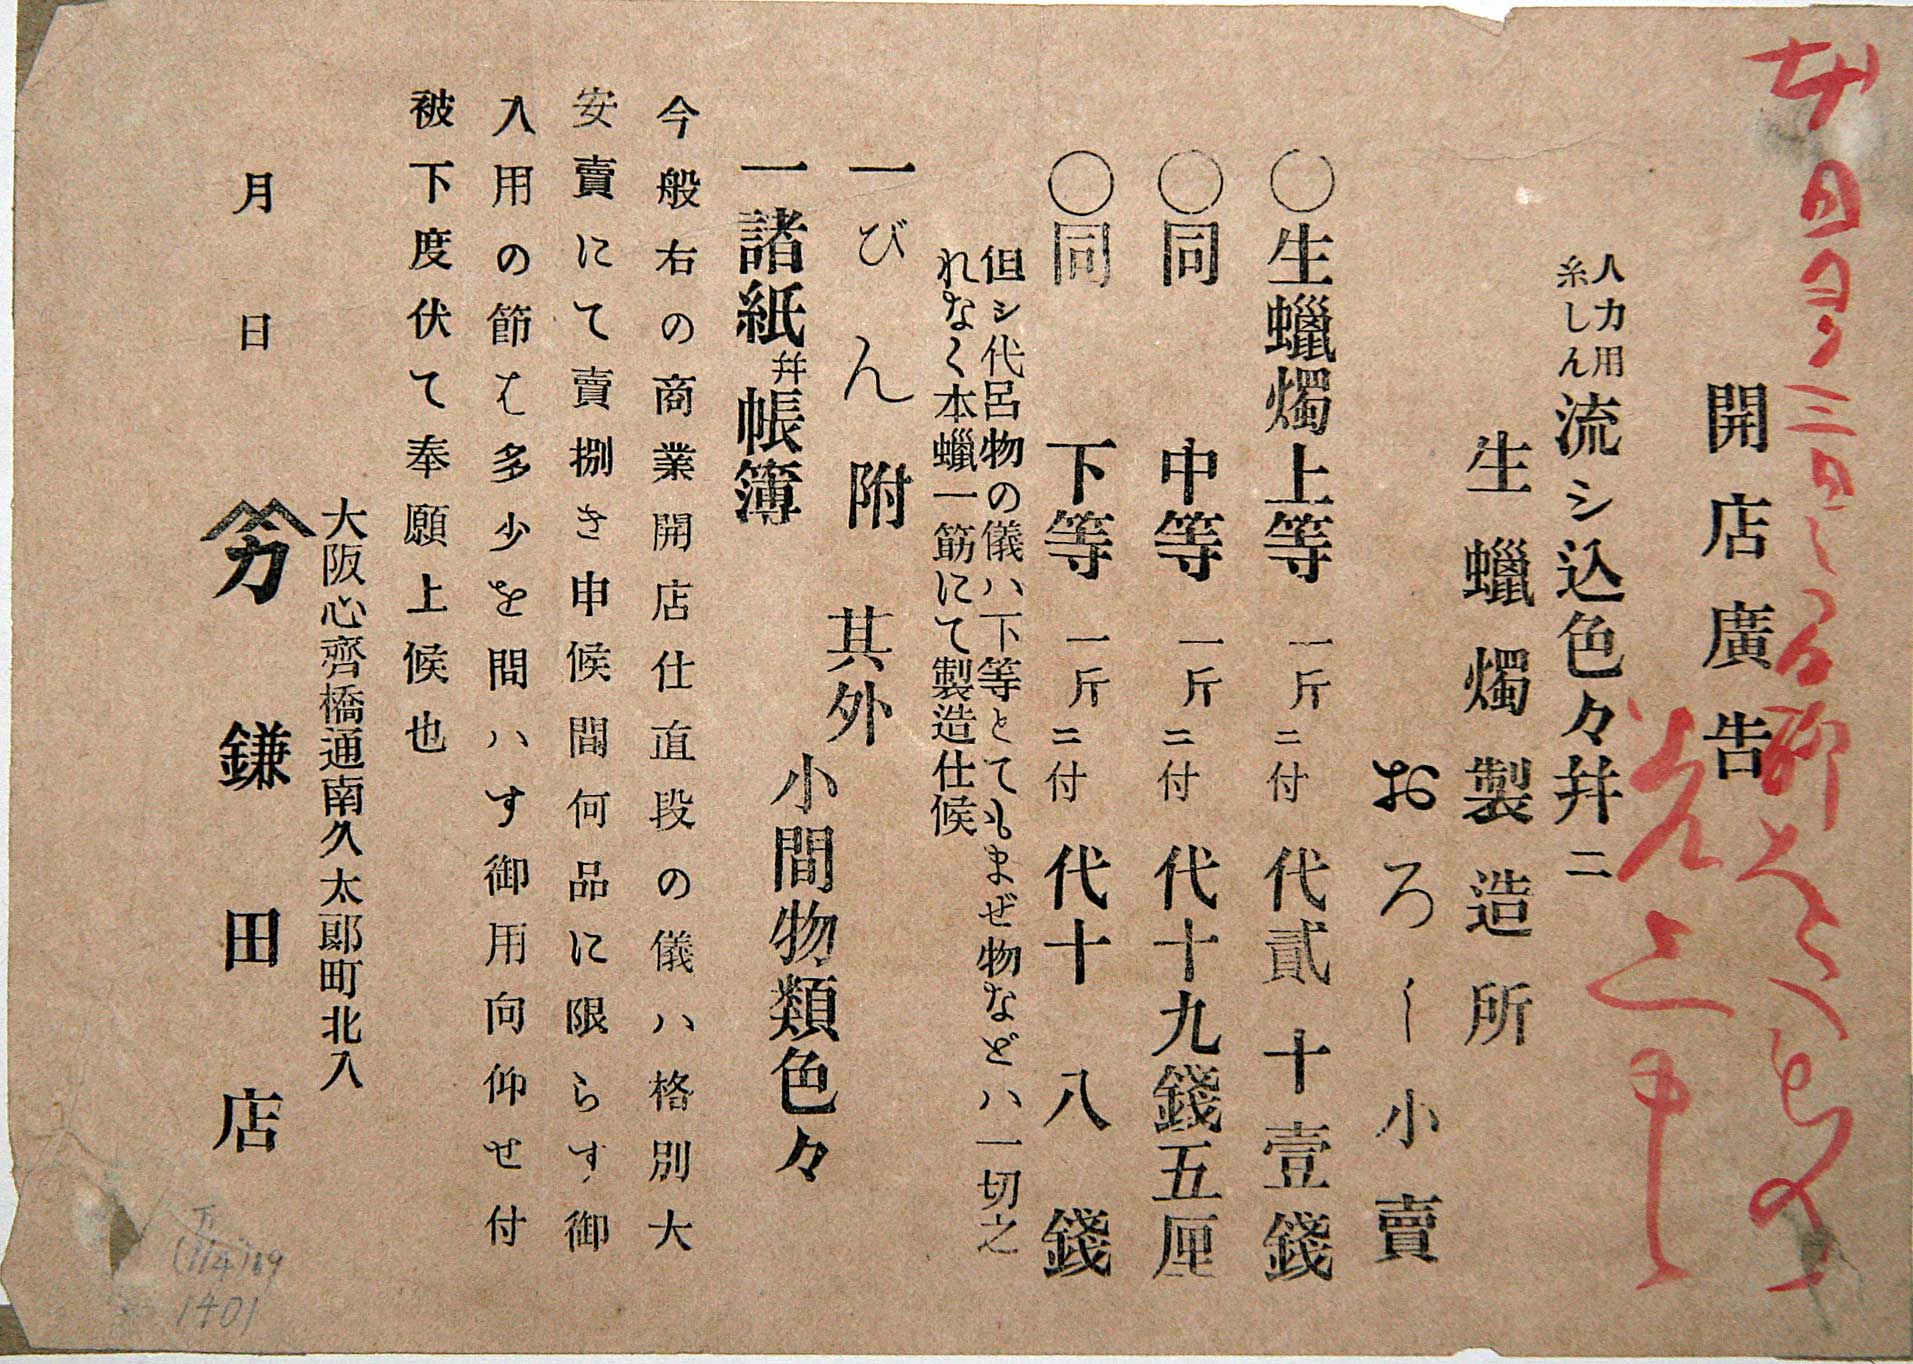 開店廣告
人力用
糸しん
流シ込色々幷ニ
生蠟燭製造所
おろし小賣
〇生蠟燭上等 一斤ニ付 代貳十壹錢
〇同 中等 一斤ニ付 代十九錢五厘
〇同 下等 一斤ニ付 代十八錢
但シ代呂物の儀ハ下等とてもまぜ物などハ一切之
れなく本蠟一筋にて製造仕候
一びん附 其外
一諸紙幷帳簿
小間物類色々
今般右の商業開店仕直段の儀ハ格別大
安賣にて賣捌き申候間何品に限らす御
入用の節は多少を間ハす御用向仰せ付
被下度伏て奉願上候也
月 日
大阪心齊橋通南久太郎町北入
力 鎌田店
(114)69
1401